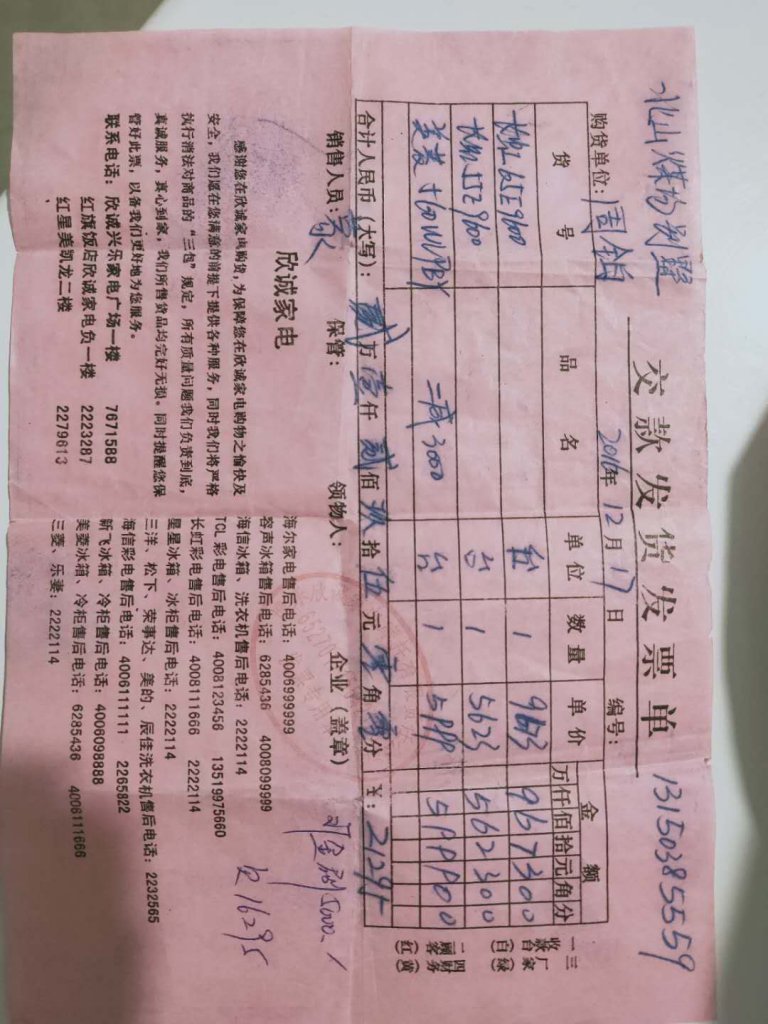 北山煤场别墅 13150385559
交款发货发票单
购货单位：周 2016年12月17日 编号：
货号 品名 单位 数量 单价 金额
万仟佰拾元角分
长虹65Z9600 台 1 9673 967300
长虹55Z9600 台 1 5623 562300
美菱 560WUPBY 二减3000 台 1 5999 599900
合计人民币（大写）：贰万壹仟贰佰玖拾伍元零角零分 ¥：21295
销售人员： 保管： 领物人： 企业（盖章）
订金刷5000
欠16295
一收款台（白）
二顾客（红）
三厂家（绿）
四财务（黄）
欣诚家电
感谢您在欣诚家电购货，为保障您在欣诚家电购物之愉快及
安全，我们愿在您满意的前提下提供各种服务，同时我们将严格
执行消法对商品的“三包”规定，所有质量问题我们负责到底，
真诚服务，真心到家，我们所售货品均完好无损。同时提醒您保
管好此票，以备我们更好地为您服务。
联系电话：欣诚兴乐家电广场一楼 7671588
红旗饭店欣诚家电负一楼 2223287
红星美凯龙二楼 2279613
海尔家电售后电话：4006999999
容声冰箱售后电话：6285436 4008099999
海信冰箱、洗衣机售后电话：2222114
TCL彩电售后电话：4008123456 13519975660
长虹彩电售后电话：4008111666 2222114
星星冰箱、冰柜售后电话：2222114
三洋、松下、荣事达、美的、辰佳洗衣机售后电话：2232565
海信彩电售后电话：4006111111 2265822
新飞冰箱、冷柜售后电话：4006098888
美菱冰箱、冷柜售后电话：6285436 4006111666
三菱、乐妻：2222114